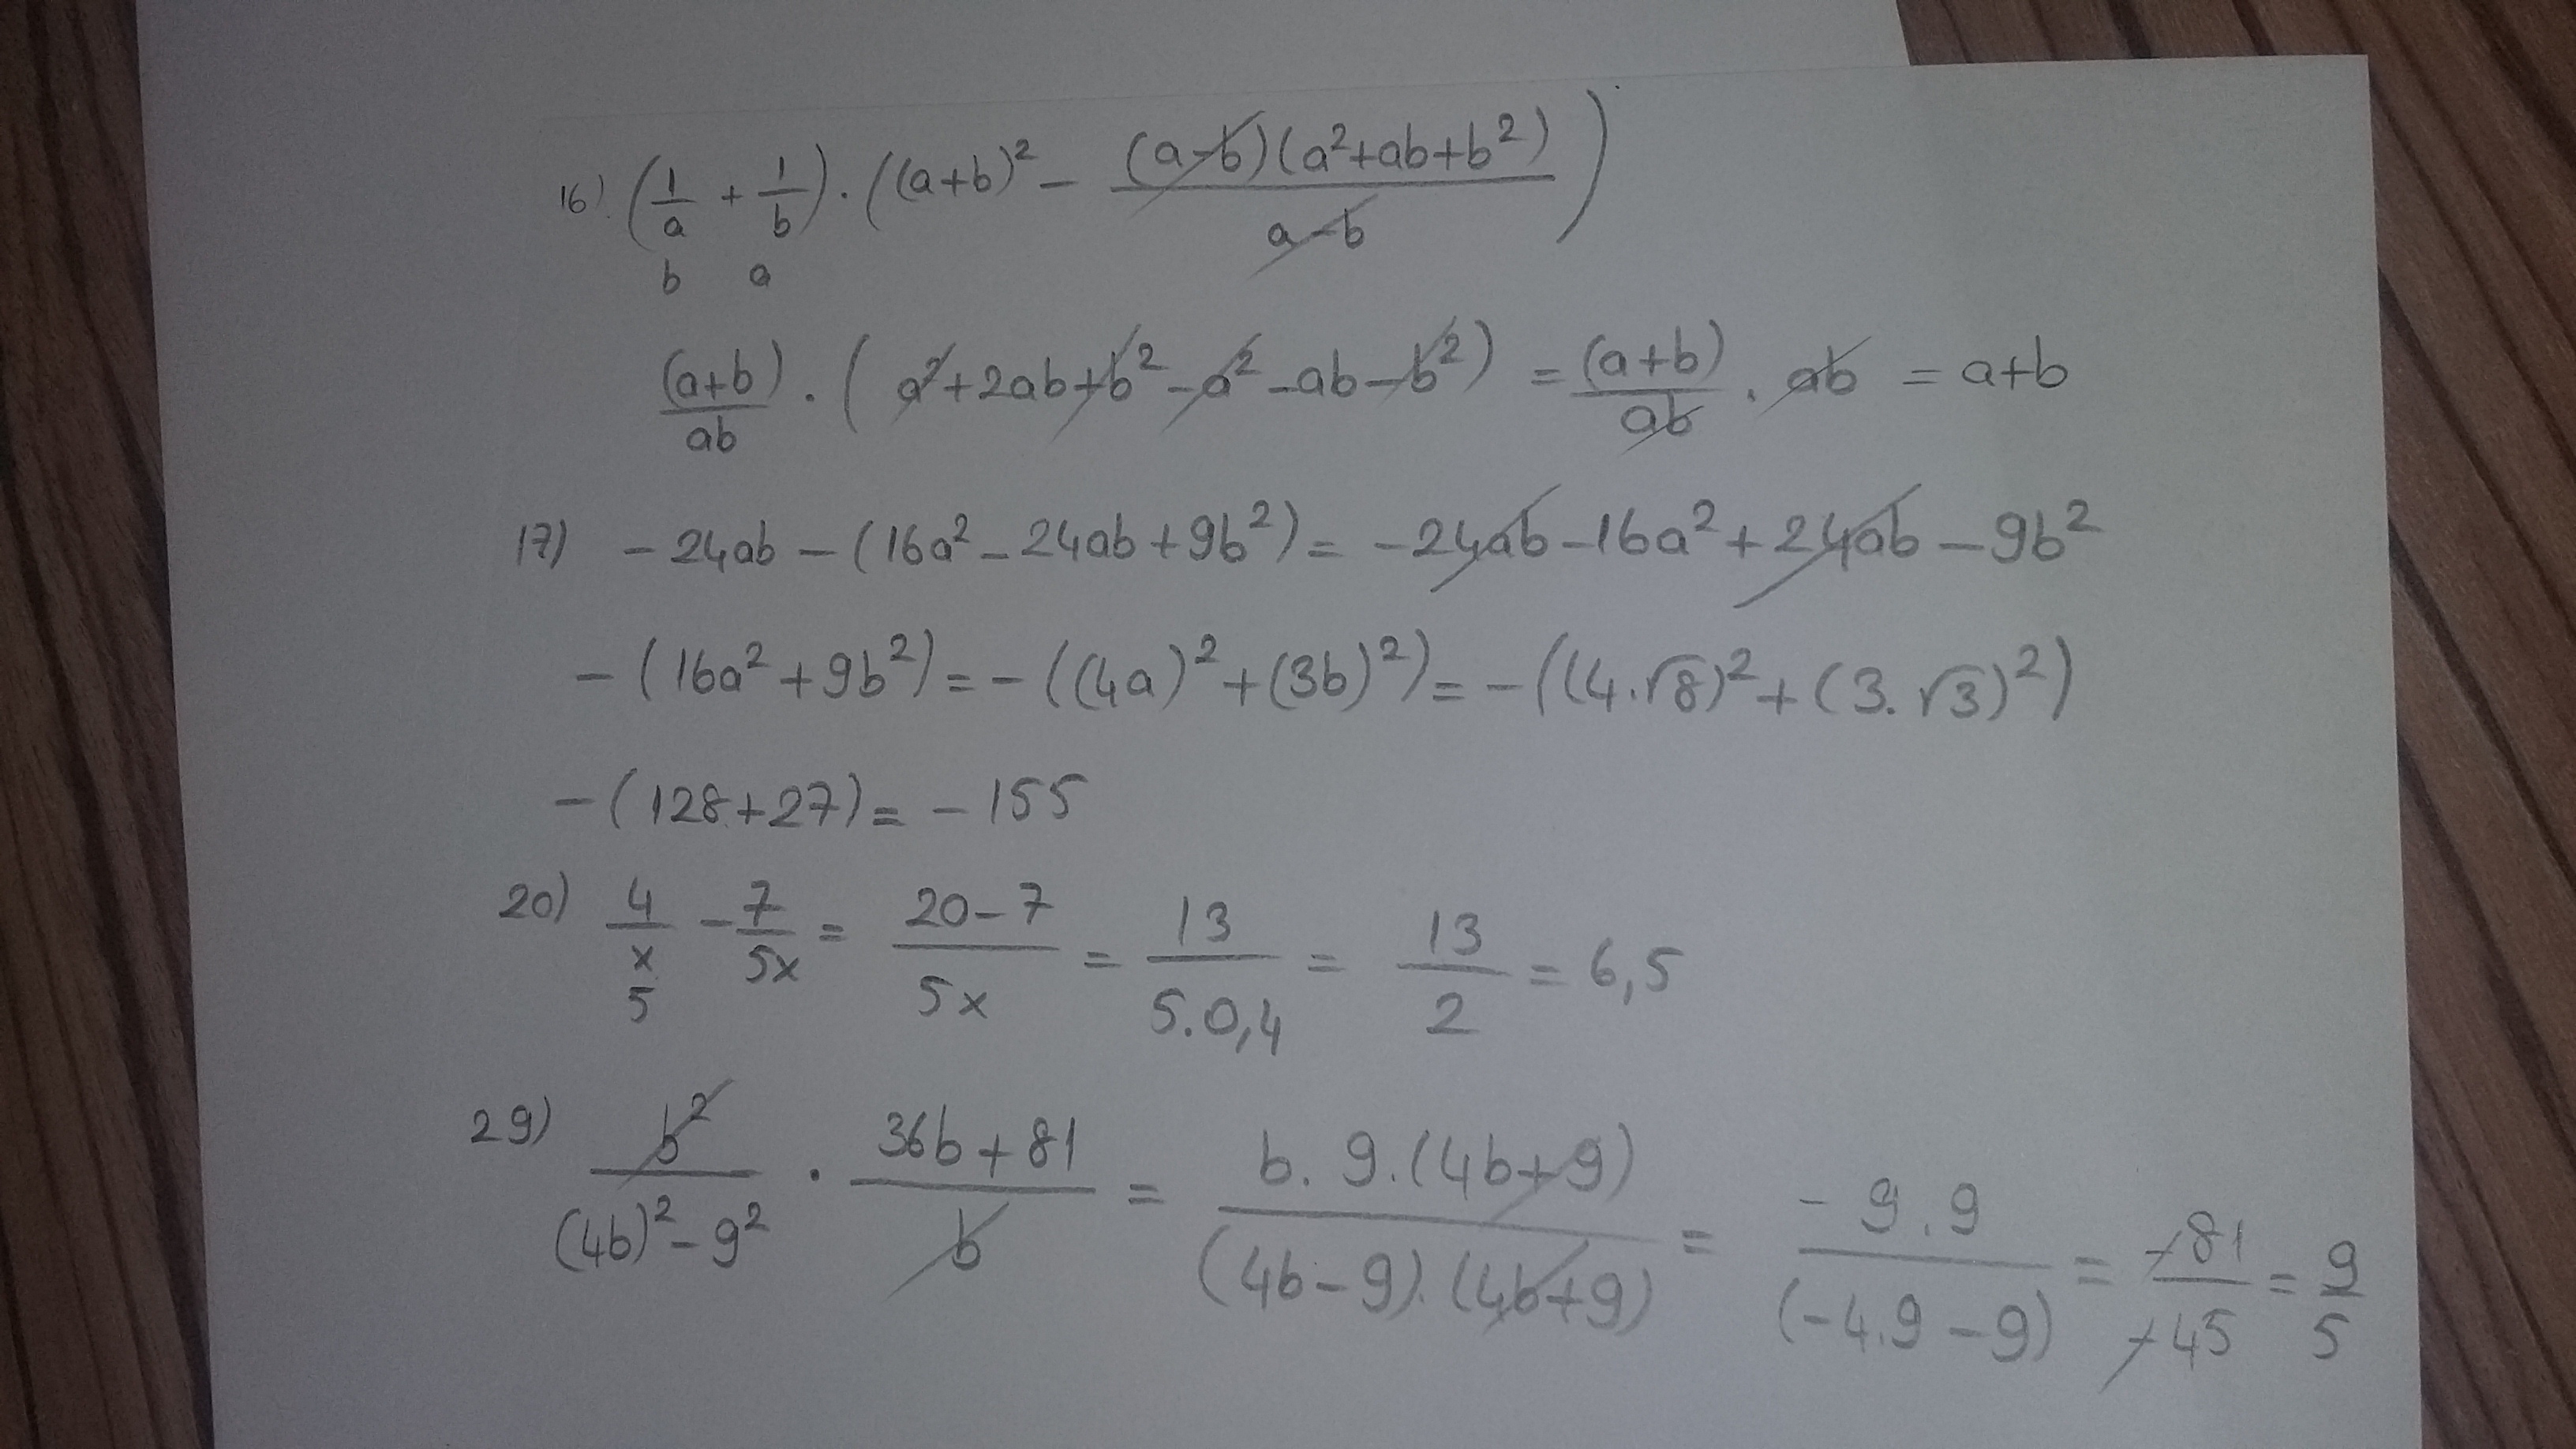 16) (1/a + 1/b) . ((a+b)² - (a-b)(a²+ab+b²)/(a-b))
b a
(a+b)/ab . (a²+2ab+b²-a²-ab-b²) = (a+b)/ab . ab = a+b
17) -24ab - (16a² - 24ab + 9b²) = -24ab - 16a² + 24ab - 9b²
-(16a² + 9b²) = -((4a)² + (3b)²) = -((4.√8)² + (3.√3)²)
-(128+27) = -155
20) 4/x - 7/5x = (20-7)/5x = 13/5.0,4 = 13/2 = 6,5
5
29) b²/((4b)² - 9²) . (36b+81)/b = b.9.(4b+9)/(4b-9).(4b+9) = -9.9/(-4.9-9) = -81/-45 = 9/5